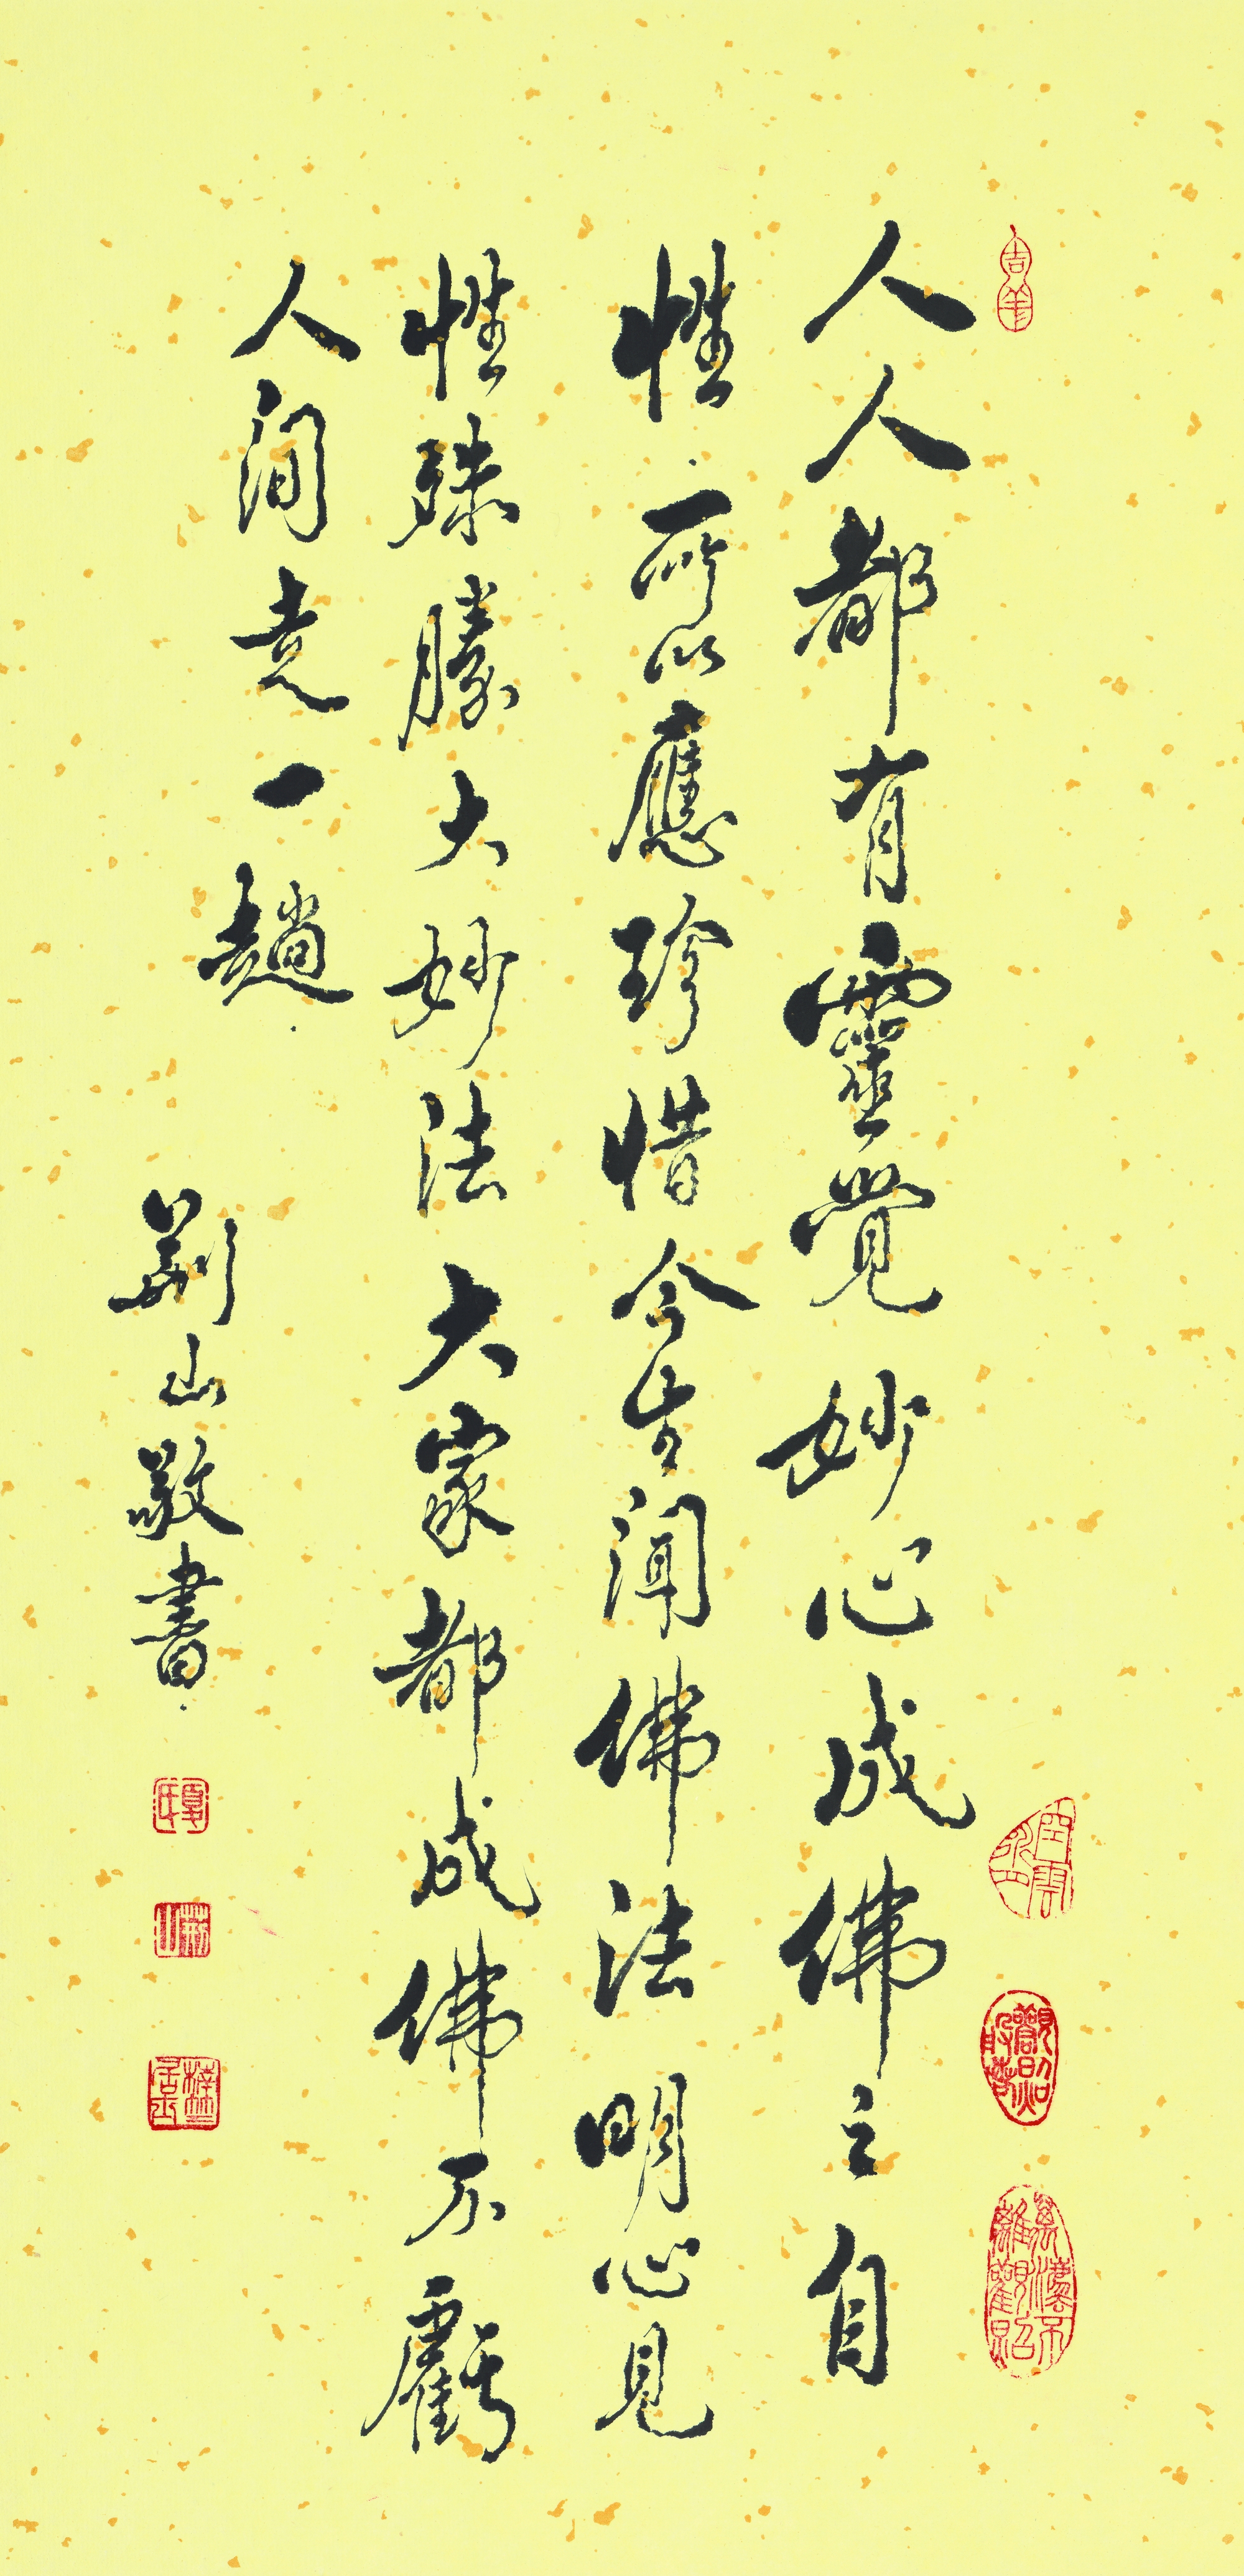 人人都有靈覺妙心成佛之自
性所以應珍惜今生聞佛法明心見
性殊勝大妙法大家都成佛不虧
人間走一趟
荊山敬書